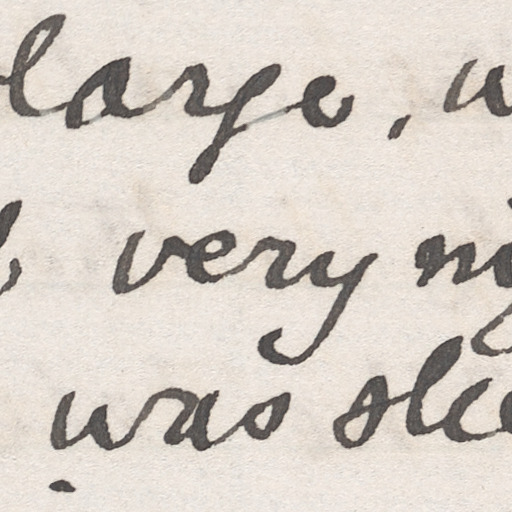 large, w
very nig
was slee